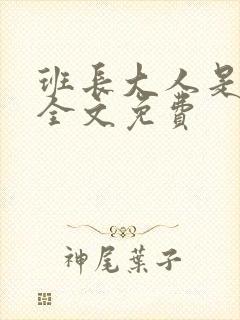 班長大人是
全文免費
神尾葉子